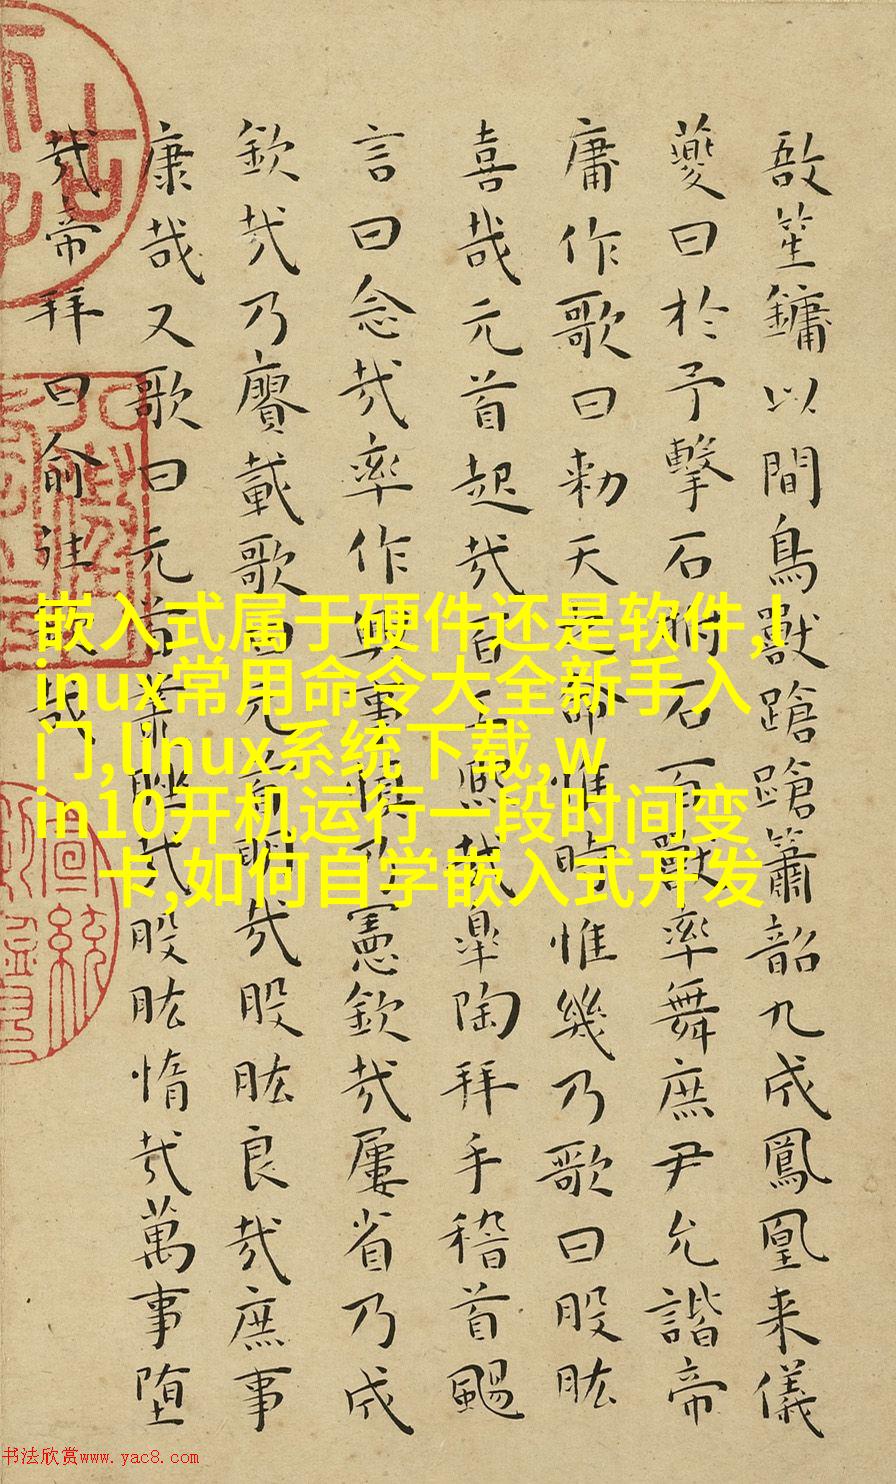 敔笙鏞以間鳥獸蹌蹌簫韶九成鳳凰来儀
夔曰於予擊石拊石百獸率舞庶尹允諧帝
庸作歌曰勅天之命惟時惟幾乃歌曰股肱
喜哉元首起哉百工熙哉皐陶拜手稽首颺
言曰念哉率作興事慎乃憲欽哉屢省乃成
欽哉乃賡載歌曰元首明哉股肱良哉庶事
康哉又歌曰元首叢脞哉股肱惰哉萬事堕
哉帝拜曰俞往欽哉
嵌入式属于硬件还是软件,l
inux常用命令大全新手入
门,linux系统下载,w
in10开机运行一段时间变
卡,如何自学嵌入式开发
书法欣赏www.yac8.com